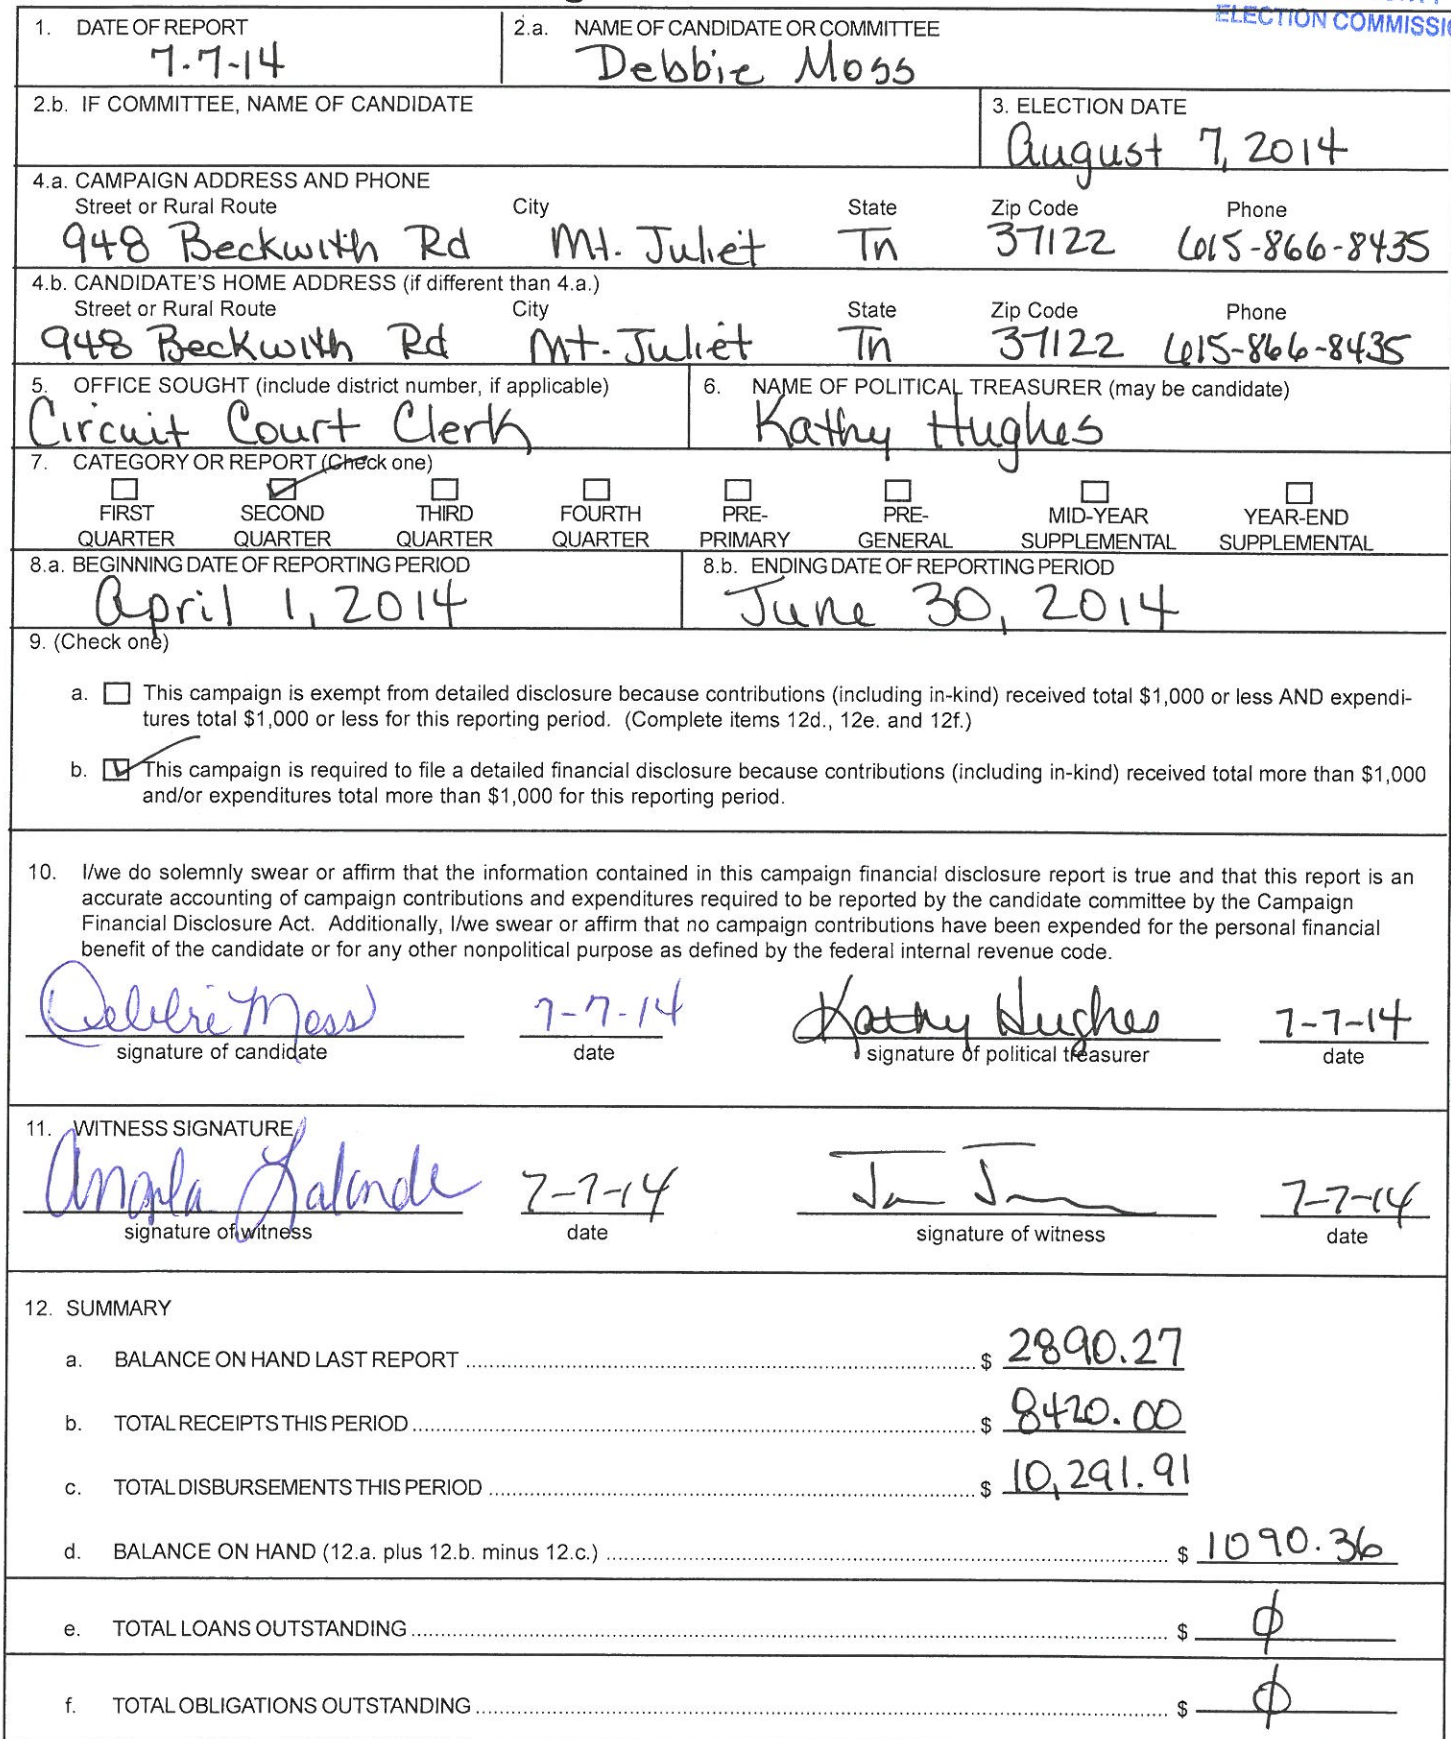 ELECTION COMMISSI
1. DATE OF REPORT
7-7-14
2.a. NAME OF CANDIDATE OR COMMITTEE
Debbie Moss
2.b. IF COMMITTEE, NAME OF CANDIDATE
3. ELECTION DATE
August 7, 2014
4.a. CAMPAIGN ADDRESS AND PHONE
Street or Rural Route City State Zip Code Phone
948 Beckwith Rd Mt. Juliet Tn 37122 615-866-8435
4.b. CANDIDATE'S HOME ADDRESS (if different than 4.a.)
Street or Rural Route City State Zip Code Phone
948 Beckwith Rd Mt. Juliet Tn 37122 615-866-8435
5. OFFICE SOUGHT (include district number, if applicable)
Circuit Court Clerk
6. NAME OF POLITICAL TREASURER (may be candidate)
Kathy Hughes
7. CATEGORY OR REPORT (Check one)
FIRST SECOND THIRD FOURTH PRE- PRE- MID-YEAR YEAR-END
QUARTER QUARTER QUARTER QUARTER PRIMARY GENERAL SUPPLEMENTAL SUPPLEMENTAL
8.a. BEGINNING DATE OF REPORTING PERIOD
April 1, 2014
8.b. ENDING DATE OF REPORTING PERIOD
June 30, 2014
9. (Check one)
a. This campaign is exempt from detailed disclosure because contributions (including in-kind) received total $1,000 or less AND expendi-
tures total $1,000 or less for this reporting period. (Complete items 12d., 12e. and 12f.)
b. This campaign is required to file a detailed financial disclosure because contributions (including in-kind) received total more than $1,000
and/or expenditures total more than $1,000 for this reporting period.
10. I/we do solemnly swear or affirm that the information contained in this campaign financial disclosure report is true and that this report is an
accurate accounting of campaign contributions and expenditures required to be reported by the candidate committee by the Campaign
Financial Disclosure Act. Additionally, I/we swear or affirm that no campaign contributions have been expended for the personal financial
benefit of the candidate or for any other nonpolitical purpose as defined by the federal internal revenue code.
Debbie Moss 7-7-14 Kathy Hughes 7-7-14
signature of candidate date signature of political treasurer date
11. WITNESS SIGNATURE
Angela Lalande 7-7-14 7-7-14
signature of witness date signature of witness date
12. SUMMARY
a. BALANCE ON HAND LAST REPORT $ 2890.27
b. TOTAL RECEIPTS THIS PERIOD $ 8420.00
c. TOTAL DISBURSEMENTS THIS PERIOD $ 10,291.91
d. BALANCE ON HAND (12.a. plus 12.b. minus 12.c.) $ 1090.36
e. TOTAL LOANS OUTSTANDING $ ϕ
f. TOTAL OBLIGATIONS OUTSTANDING $ ϕ